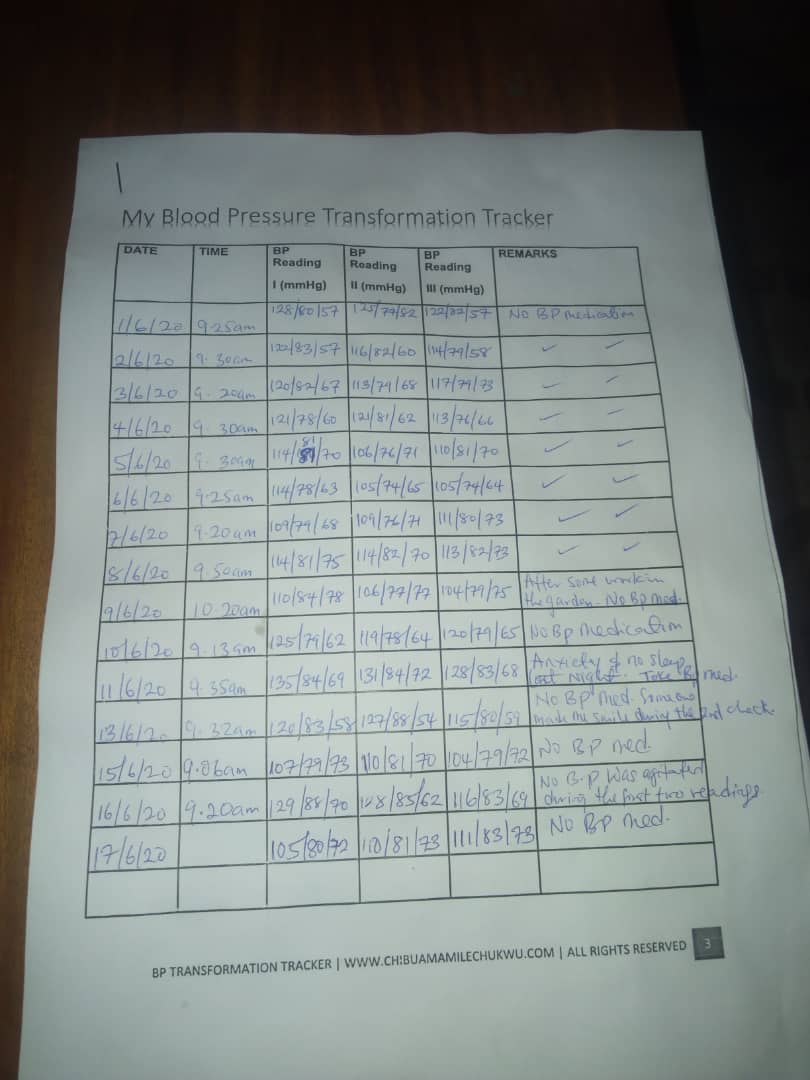 My Blood Pressure Transformation Tracker
DATE TIME BP Reading I (mmHg) BP Reading II (mmHg) BP Reading III (mmHg) REMARKS
1/6/20 9.25am 128/80/57 125/79/52 122/82/57 No BP medication
2/6/20 9.30am 122/83/57 116/82/60 114/79/58 ✓ ✓
3/6/20 9.20am 120/82/67 113/79/68 117/79/73 ✓ ✓
4/6/20 9.30am 121/78/60 121/81/62 113/76/66 ✓ ✓
5/6/20 9.30am 114/81/70 106/76/71 110/81/70 ✓ ✓
6/6/20 9.25am 114/78/63 105/74/65 105/74/64 ✓ ✓
7/6/20 9.20am 109/79/68 109/76/71 111/80/73 ✓ ✓
8/6/20 9.50am 114/81/75 114/82/70 113/82/73 ✓ ✓
9/6/20 10.20am 110/84/78 106/77/77 104/79/75 After some work in
the garden. No Bp med.
10/6/20 9.13am 125/79/62 119/78/64 120/79/65 No Bp medication
11/6/20 9.35am 135/84/69 131/84/72 128/83/68 Anxiety & no sleep
last Night. Take Bp med.
13/6/20 9.32am 120/83/58 127/88/54 115/80/59 No BP med. Someone
made me smile during the 2nd check.
15/6/20 9.06am 107/79/73 110/81/70 104/79/72 No BP med.
16/6/20 9.20am 129/88/70 128/85/62 116/83/69 No B.P Was agitated
during the first two readings
17/6/20 105/80/72 110/81/73 111/83/73 No BP med.
BP TRANSFORMATION TRACKER | WWW.CHIBUAMAMILECHUKWU.COM | ALL RIGHTS RESERVED 3